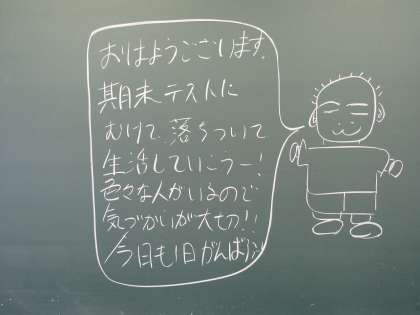 おはようございます.
期末テストに
むけて、落ちついて
生活していこうー!
色々な人がいるので
気づかいが大切!!
今日も1日がんばろう